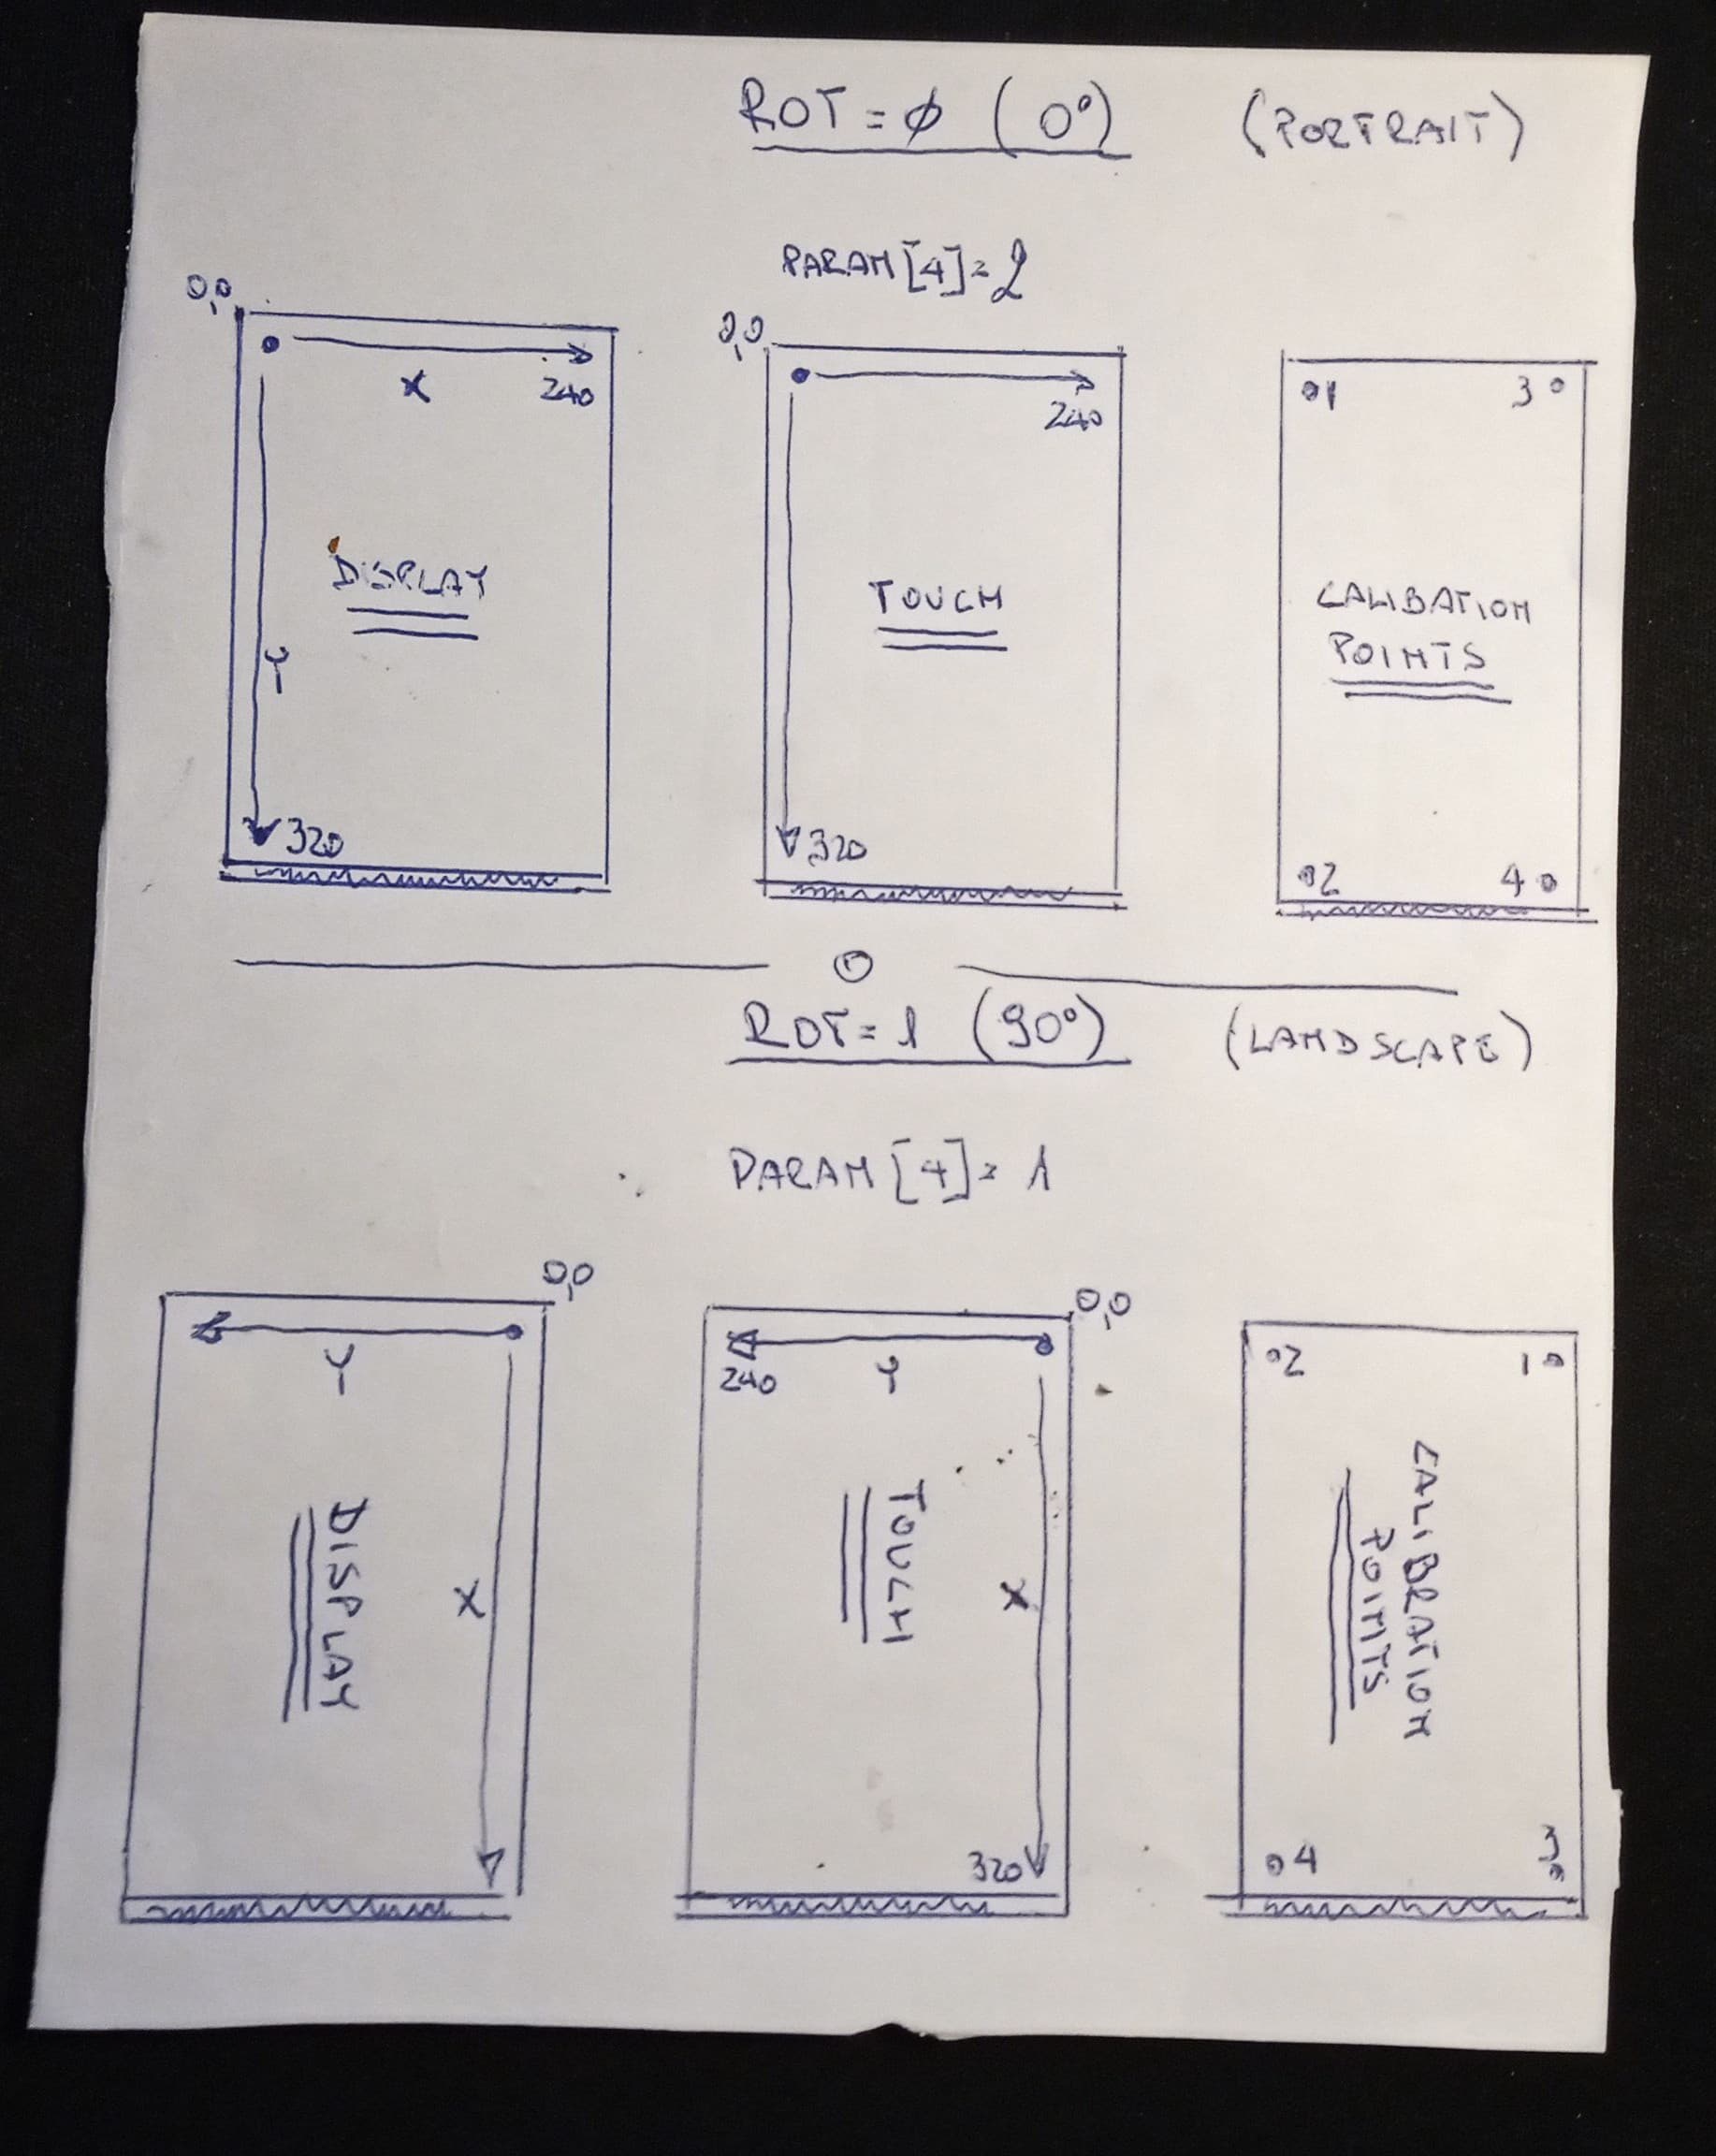 ROT=φ (0°) (PORTRAIT)
PARAM[4]=2
0,0
X
240
DISPLAY
Y
320
0,0
240
TOUCH
320
1 3
CALIBATION
POINTS
2 4
ROT=1 (90°) (LANDSCAPE)
PARAM[4]=1
0,0
Y
X
DISPLAY
0,0
240 Y
X
TOUCH
320
2 1
CALIBRATION
POINTS
4 3